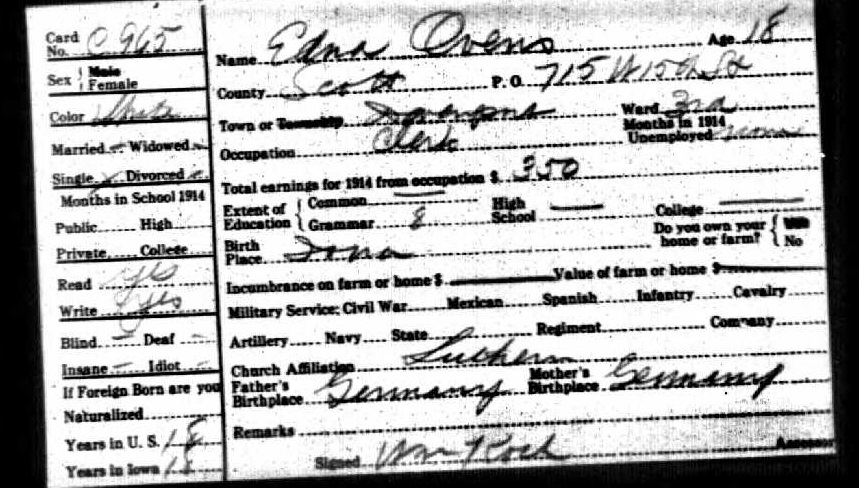 Card No. C 965
Sex Male Female
Color White
Married Widowed
Single Divorced
Months in School 1914
Public High
Private College
Read yes
Write yes
Blind Deaf
Insane Idiot
If Foreign Born are you
Naturalized
Years in U. S. 18
Years in Iowa 18
Name Edna Ovens Age 18
County Scott P. O. 715 W 15th St
Town or Township Ward 3rd
Occupation Clerk Months in 1914 Unemployed none
Total earnings for 1914 from occupation $ 350
Extent of Education Common Grammar 8 High School College
Birth Place Iowa Do you own your home or farm? No
Incumbrance on farm or home $ Value of farm or home $
Military Service: Civil War Mexican Spanish Infantry Cavalry
Artillery Navy State Regiment Company
Church Affiliation Luthern
Father's Birthplace Germany Mother's Birthplace Germany
Remarks
Signed Wm Koch Assessor